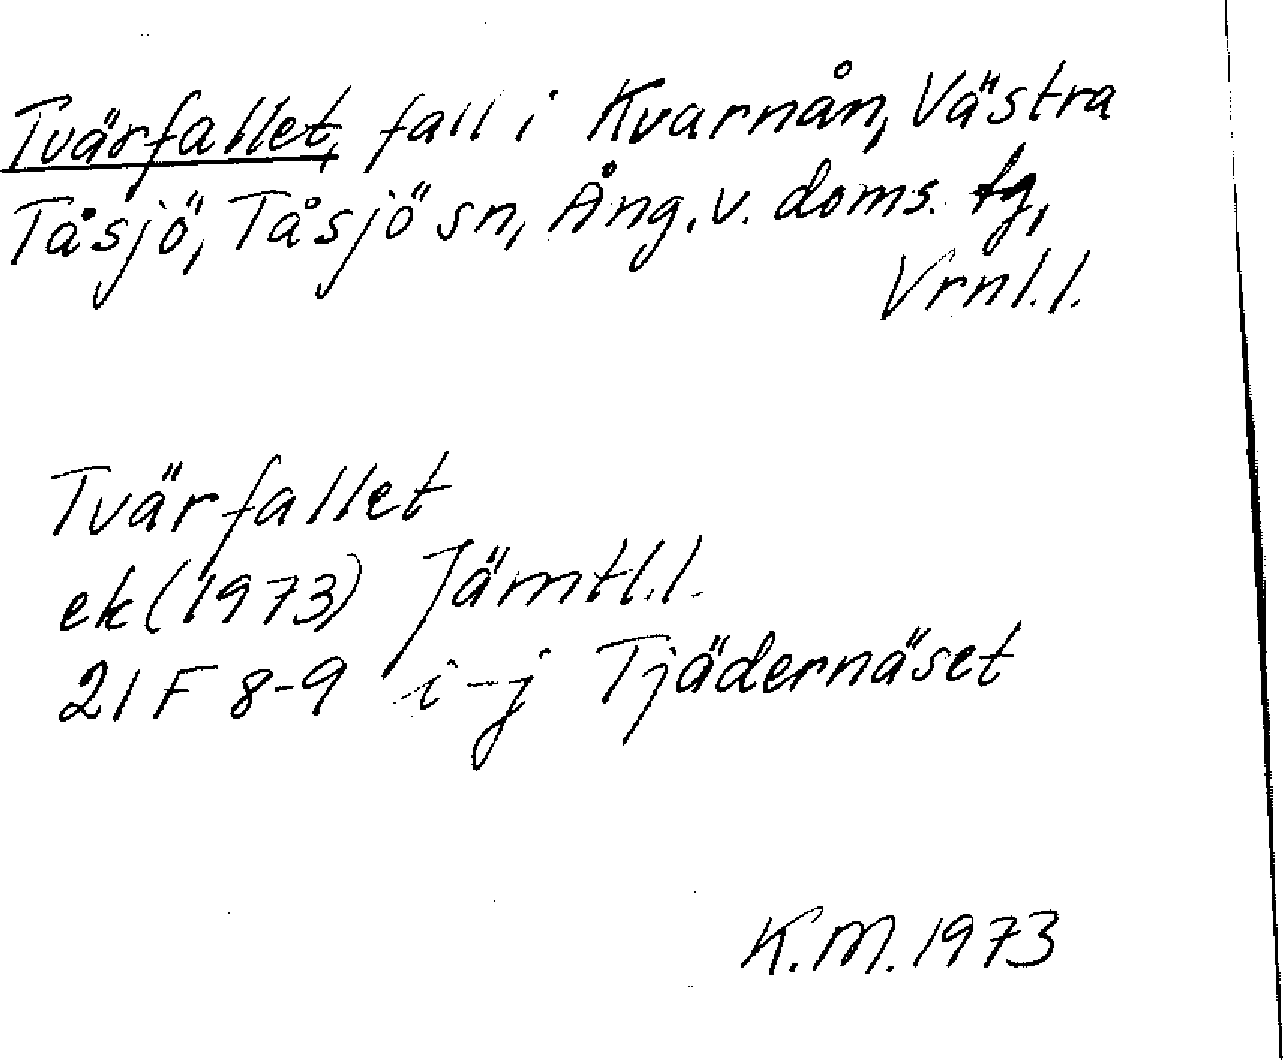 Tvärfallet, fall i Kvarnån, Västra
Tåsjö, Tåsjö sn, Ång. v. doms. tg,
Vrnl.l.
Tvärfallet
ek (1973) Jämtl.l.
21 F 8-9 i-j Tjädernäset
K.M. 1973